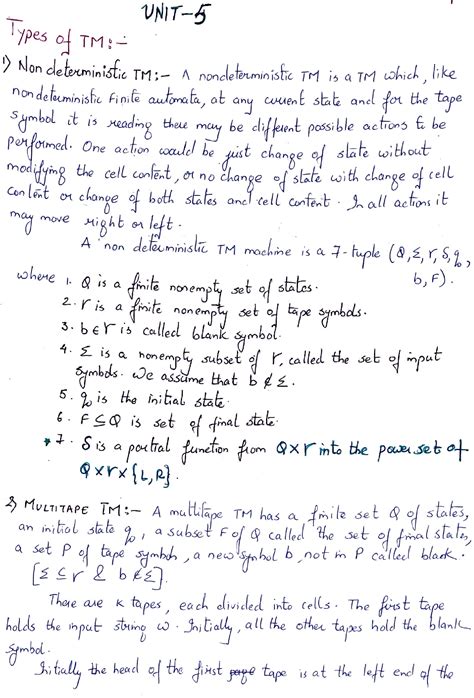 UNIT-5
Types of TM:-
1) Non deterministic TM:- A nondeterministic TM is a TM which, like
nondeterministic Finite automata, at any current state and for the tape
symbol it is reading there may be different possible actions to be
performed. One action could be just change of state without
modifying the cell content, or no change of state with change of cell
content or change of both states and cell content. In all actions it
may move right or left.
A non deterministic TM machine is a 7-tuple (Q, Σ, Γ, δ, q₀,
b, F).
where 1. Q is a finite nonempty set of states.
2. Γ is a finite nonempty set of tape symbols.
3. b ∈ Γ is called blank symbol.
4. Σ is a nonempty subset of Γ, called the set of input
symbols. We assume that b ∉ Σ.
5. q₀ is the initial state.
6. F ⊆ Q is set of final state.
*7. δ is a partial function from Q×Γ into the power set of
Q×Γ×{L,R}.
2) MULTITAPE TM:- A multitape TM has a finite set Q of states,
an initial state q₀, a subset F of Q called the set of final states,
a set P of tape symbols, a new symbol b, not in P called black.
[Σ ⊆ Γ & b ∉ Σ].
There are k tapes, each divided into cells. The first tape
holds the input string ω. Initially, all the other tapes hold the blank
symbol.
Initially the head of the first tape is at the left end of the